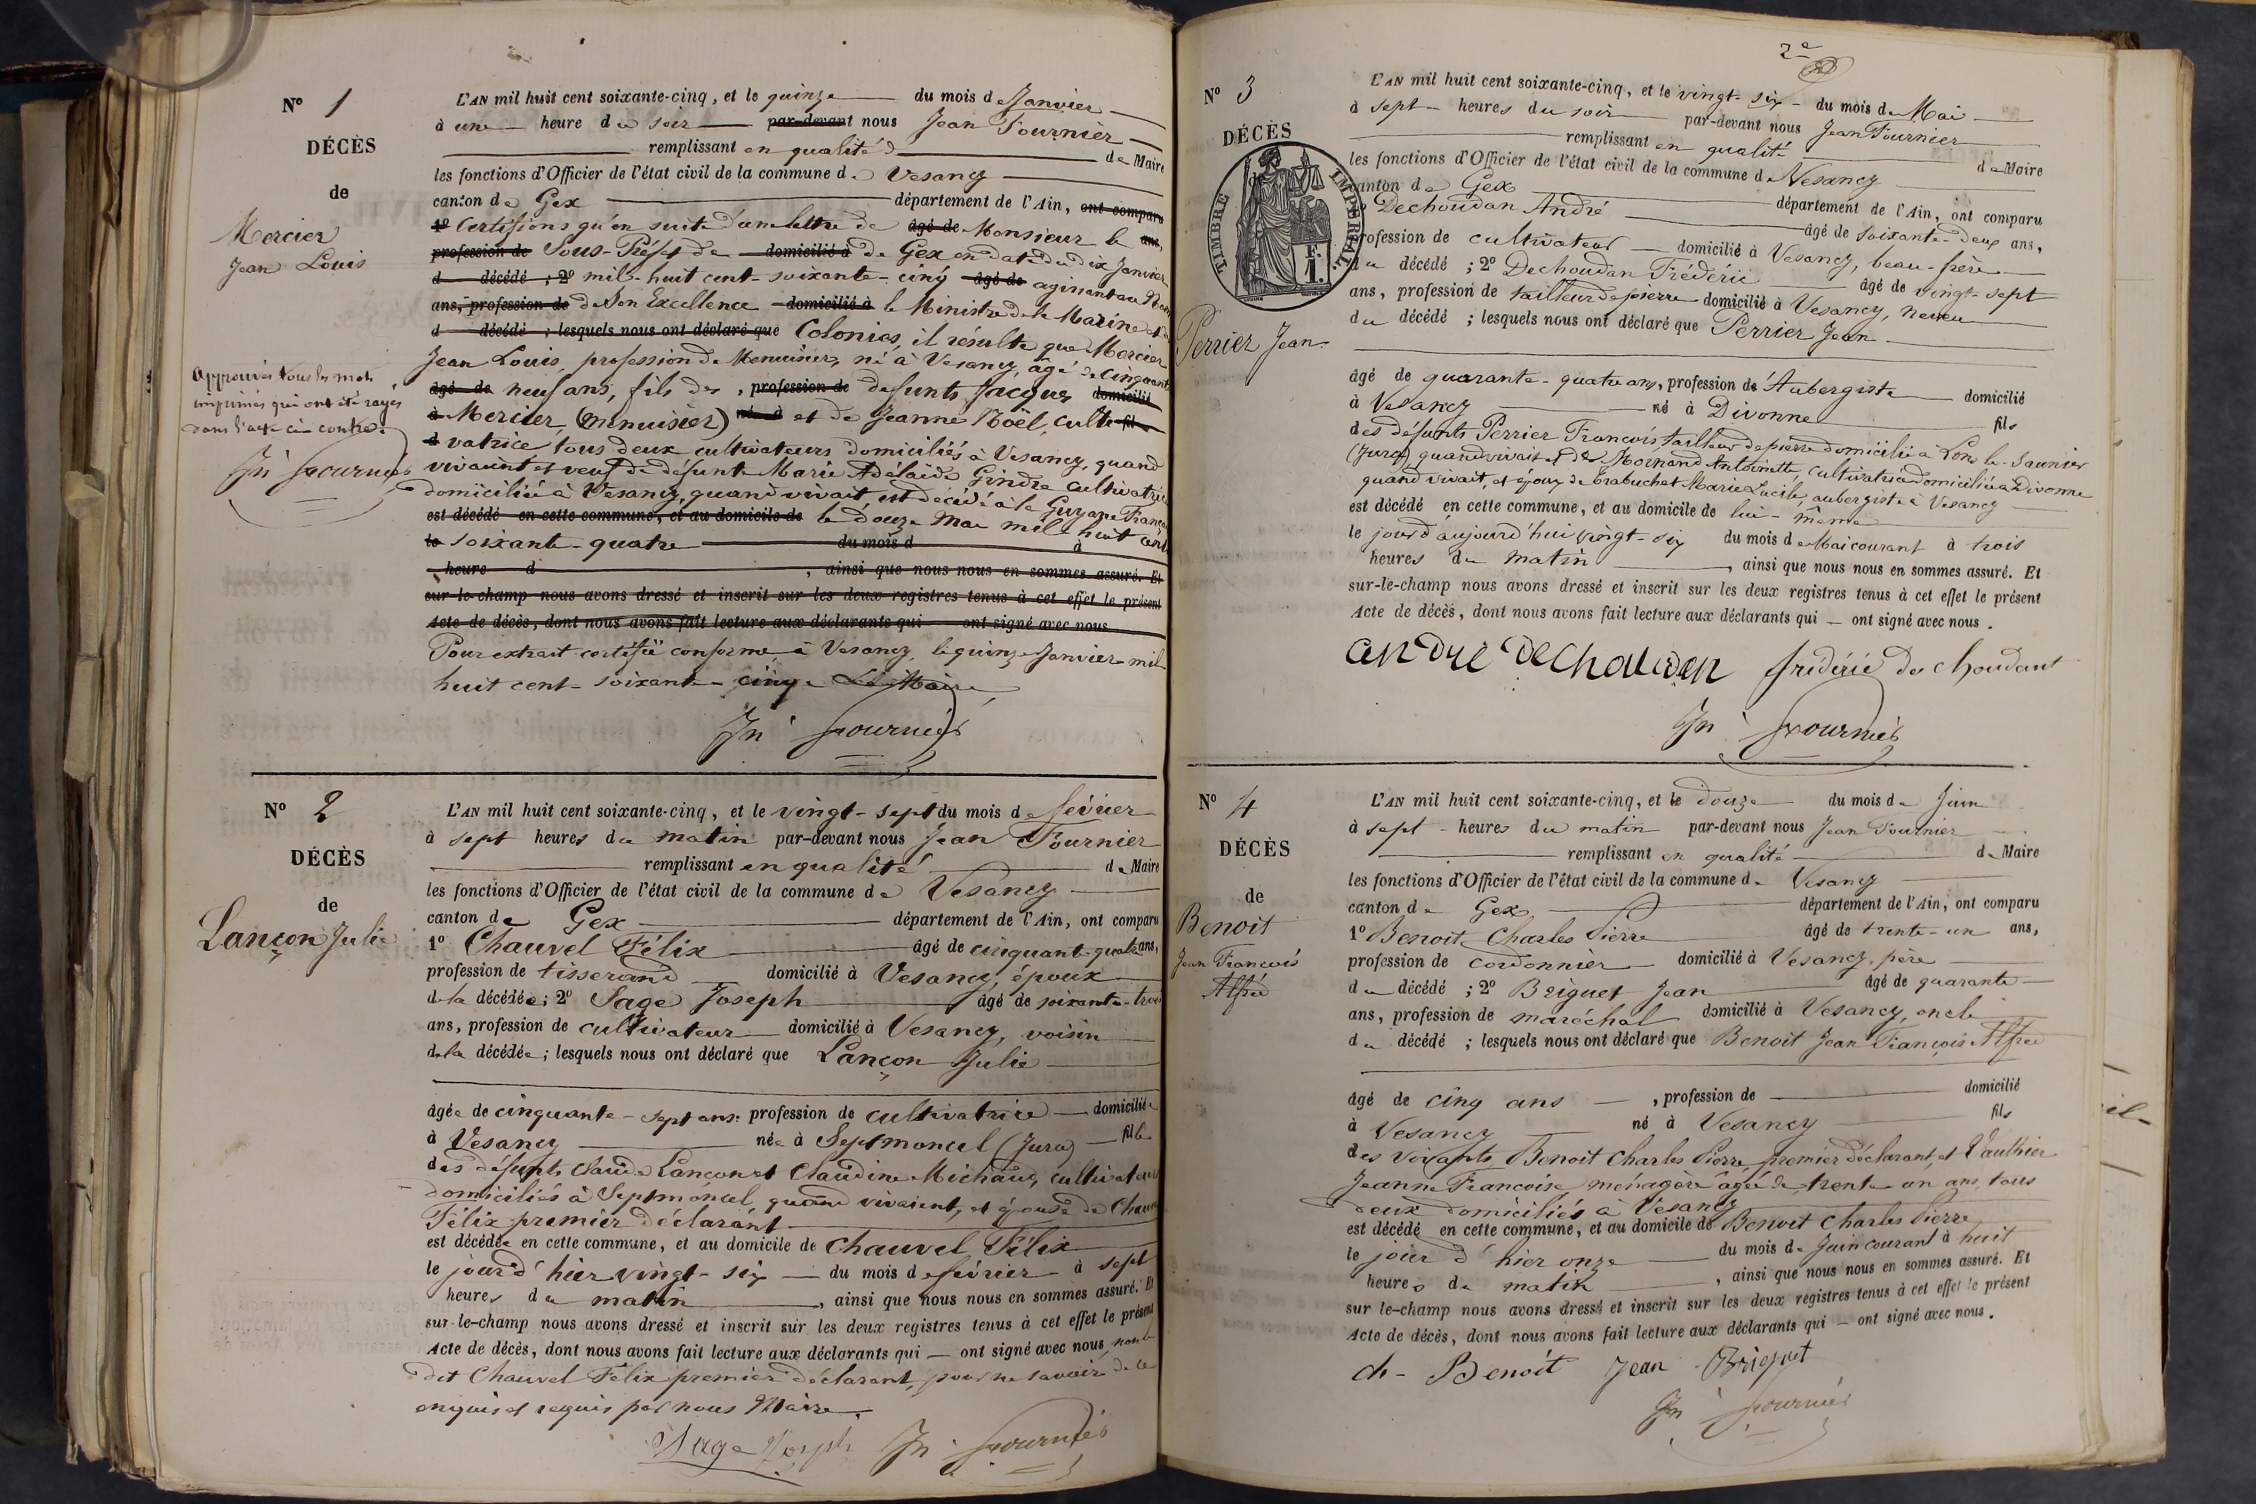 N° 1
DÉCÈS
de
Mercier
Jean Louis
Approuvés tous les mots
imprimés qui ont été rayés
dans l'acte ci-contre.
Jn Fournier
L'AN mil huit cent soixante-cinq, et le quinze du mois de Janvier
à une heure du soir par-devant nous Jean Fournier
remplissant en qualité d de Maire
les fonctions d'Officier de l'état civil de la commune de Vesancy
canton de Gex département de l'Ain, ont comparu
1° Certifions qu'en suite d'une lettre de âgé de Monsieur le ans,
profession de Sous-Préfet de domicilié à de Gex en date du dix Janvier
d décédé ; 2° mil-huit cent-soixante-cinq âgé de agissant au Nom
ans, profession de de Son Excellence domicilié à le Ministre de la Marine et des
d décédé ; lesquels nous ont déclaré que Colonies, il résulte que Mercier
Jean Louis, profession de Menuisier, né à Vesancy, âgé de cinquante
âgé de neuf ans, fils des , profession de defunts Jacques domicilié
à Mercier, (menuisier) né à et de Jeanne Noël, culti- fil
d vatrice tous deux cultivateurs domiciliés à Vesancy, quand
vivaient et veuf de défunte Marie Adélaïde Gindre cultivatrice
domiciliée à Vesancy, quand vivait, est décédé à la Guyane Française
est décédé en cette commune, et au domicile de le douze Mai mil huit cent
le soixante-quatre du mois d à
heure d , ainsi que nous nous en sommes assuré. Et
sur-le-champ nous avons dressé et inscrit sur les deux registres tenus à cet effet le présent
Acte de décès, dont nous avons fait lecture aux déclarants qui ont signé avec nous
Pour extrait certifié conforme à Vesancy, le quinze Janvier mil
huit cent-soixante-cinq. Le Maire
Jn Fournier
N° 2
DÉCÈS
de
Lançon Julie
L'AN mil huit cent soixante-cinq, et le vingt-sept du mois de février
à sept heures du matin par-devant nous Jean Fournier
remplissant en qualité de Maire
les fonctions d'Officier de l'état civil de la commune de Vesancy
canton de Gex département de l'Ain, ont comparu
1° Chauvel Félix âgé de cinquante-quatre ans,
profession de tisserand domicilié à Vesancy, époux
de la décédée; 2° Sage Joseph âgé de soixante-trois
ans, profession de cultivateur domicilié à Vesancy, voisin
de la décédée; lesquels nous ont déclaré que Lançon Julie
âgée de cinquante-sept ans, profession de cultivatrice domiciliée
à Vesancy née à Septmoncel (Jura) fille
des défunts Claude Lançon et Claudine Michaud, cultivateurs
domiciliés à Septmoncel, quand vivaient, et épouse de Chauvel
Félix premier déclarant
est décédée en cette commune, et au domicile de Chauvel Félix
le jour d'hier vingt-six du mois de février à sept
heures du matin , ainsi que nous nous en sommes assuré. Et
sur-le-champ nous avons dressé et inscrit sur les deux registres tenus à cet effet le présent
Acte de décès, dont nous avons fait lecture aux déclarants qui ont signé avec nous, non le
dit Chauvel Félix premier déclarant, pour ne savoir de ce
enquis et requis par nous Maire.
Sage Joseph Jn Fournier
2e
N° 3
DÉCÈS
de
TIMBRE IMPÉRIAL
F.
1.
Perrier Jean
L'AN mil huit cent soixante-cinq, et le vingt-six du mois de Mai
à sept heures du soir par-devant nous Jean Fournier
remplissant en qualité de Maire
les fonctions d'Officier de l'état civil de la commune de Vesancy
canton de Gex département de l'Ain, ont comparu
1° Dechoudan André âgé de soixante-deux ans,
profession de cultivateur domicilié à Vesancy, beau-frère
du décédé ; 2° Dechoudan Frédéric âgé de vingt-sept
ans, profession de tailleur de pierre domicilié à Vesancy, neveu
du décédé ; lesquels nous ont déclaré que Perrier Jean
âgé de quarante-quatre ans, profession de Aubergiste domicilié
à Vesancy né à Divonne fils
des défunts Perrier François tailleur de pierre domicilié à Lons-le-Saunier
(Jura) quand vivait et de Moinand Antoinette, cultivatrice domiciliée à Divonne
quand vivait, et époux de Trabuchet Marie Lucile, aubergiste à Vesancy
est décédé en cette commune, et au domicile de lui-même
le jour d'aujourd'hui vingt-six du mois de Mai courant à trois
heures du matin , ainsi que nous nous en sommes assuré. Et
sur-le-champ nous avons dressé et inscrit sur les deux registres tenus à cet effet le présent
Acte de décès, dont nous avons fait lecture aux déclarants qui ont signé avec nous.
andre Frédéric de choudant
Jn Fournier
N° 4
DÉCÈS
de
Benoit
Jean François
Alfred
L'AN mil huit cent soixante-cinq, et le douze du mois de Juin
à sept heures du matin par-devant nous Jean Fournier
remplissant en qualité de Maire
les fonctions d'Officier de l'état civil de la commune de Vesancy
canton de Gex département de l'Ain, ont comparu
1° Benoit Charles Pierre âgé de trente-un ans,
profession de cordonnier domicilié à Vesancy, père
du décédé ; 2° Briguet Jean âgé de quarante
ans, profession de maréchal domicilié à Vesancy, oncle
du décédé ; lesquels nous ont déclaré que Benoit Jean François Alfred
âgé de cinq ans , profession de domicilié
à Vesancy né à Vesancy fils
des vivants Benoit Charles Pierre premier déclarant, et Vauthier
Jeanne Françoise ménagère âgée de trente un ans, tous
deux domiciliés à Vesancy
est décédé en cette commune, et au domicile de Benoit Charles Pierre
le jour d'hier onze du mois de Juin courant à huit
heures du matin , ainsi que nous nous en sommes assuré. Et
sur le-champ nous avons dressé et inscrit sur les deux registres tenus à cet effet le présent
Acte de décès, dont nous avons fait lecture aux déclarants qui ont signé avec nous.
ch- Benoit Jean Briguet
Jn Fournier